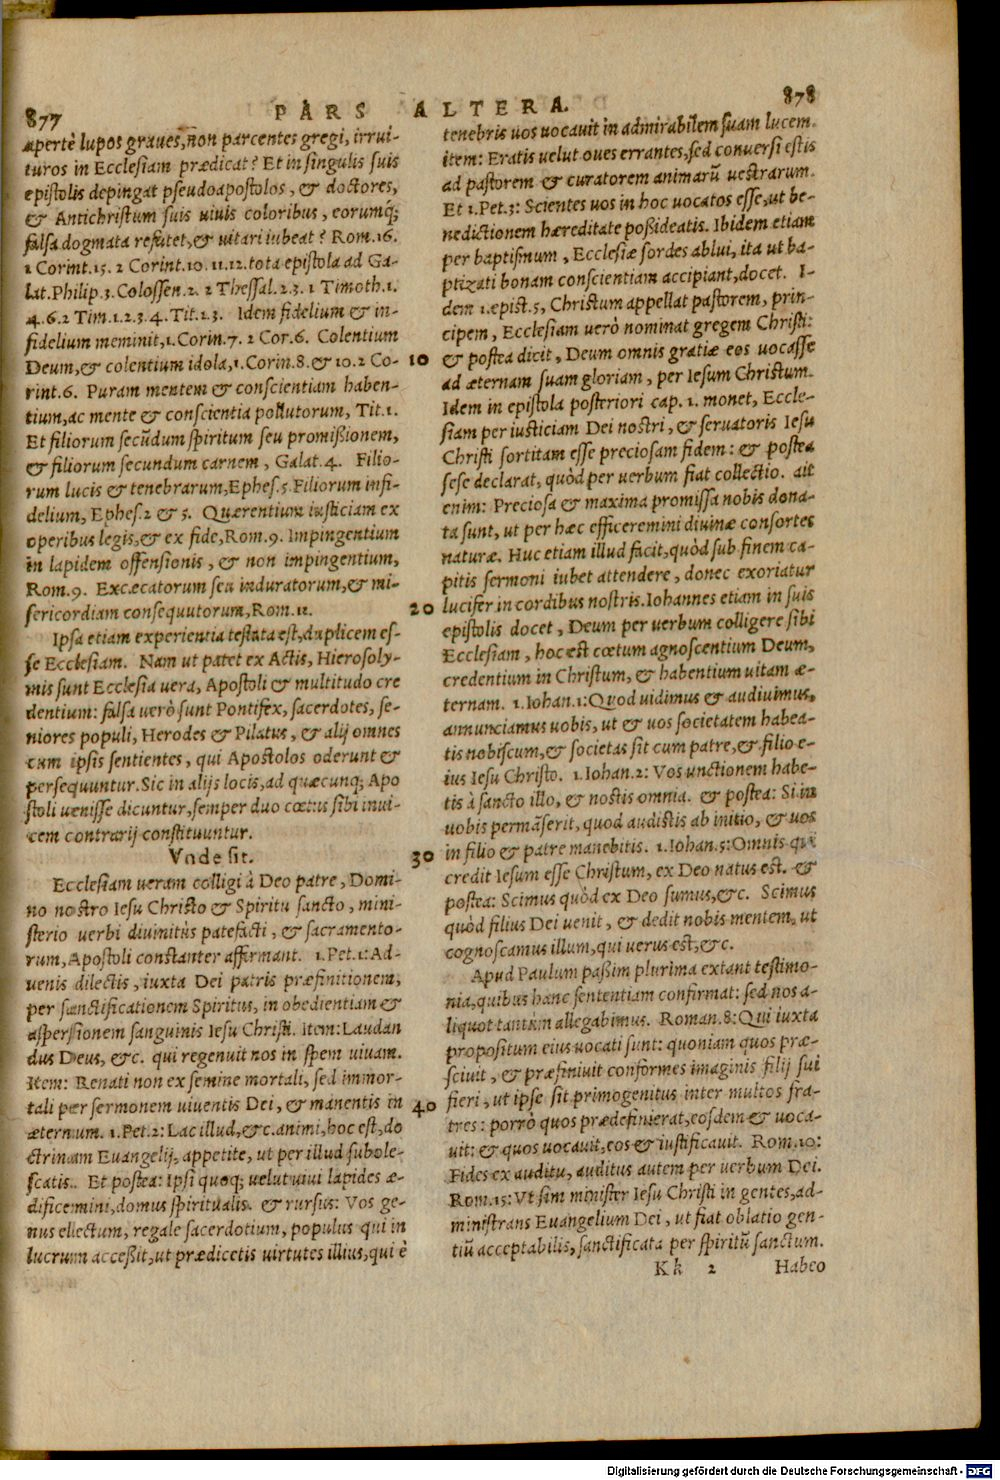 877
PARS ALTERA.
878
apertè lupos graues, non parcentes gregi, irrui-
turos in Ecclesiam prædicat? Et in singulis suis
epistolis depingat pseudoapostolos, & doctores,
& Antichristum suis uiuis coloribus, eorumq́;
falsa dogmata refutet, & uitari iubeat? Rom.16.
1 Corint.15. 2 Corint.10.11.12. tota epistola ad Ga-
lat. Philip.3. Colossen.2. 2 Thessal.2.3. 1 Timoth.1.
4.6. 2 Tim.1.2.3.4. Tit.1.3. Idem fidelium & in-
fidelium meminit, 1.Corin.7. 2 Cor.6. Colentium
Deum, & colentium idola, 1.Corin.8. & 10. 2 Co-
rint.6. Puram mentem & conscientiam haben-
tium, ac mente & conscientia pollutorum, Tit.1.
Et filiorum secũdum spiritum seu promißionem,
& filiorum secundum carnem, Galat.4. Filio-
rum lucis & tenebrarum, Ephes.5 Filiorum infi-
delium, Ephes.2 & 5. Quærentium iusticiam ex
operibus legis, & ex fide, Rom.9. Impingentium
in lapidem offensionis, & non impingentium,
Rom.9. Excæcatorum seu induratorum, & mi-
sericordiam consequutorum, Rom.11.
Ipsa etiam experientia testata est, duplicem es-
se Ecclesiam. Nam ut patet ex Actis, Hierosoly-
mis sunt Ecclesia uera, Apostoli & multitudo cre
dentium: falsa uerò sunt Pontifex, sacerdotes, se-
niores populi, Herodes & Pilatus, & alij omnes
cum ipsis sentientes, qui Apostolos oderunt &
persequuntur. Sic in alijs locis, ad quæcunq; Apo
stoli uenisse dicuntur, semper duo cœtus sibi inui-
cem contrarij constituuntur.
Vnde sit.
Ecclesiam ueram colligi à Deo patre, Domi-
no nostro Iesu Christo & Spiritu sancto, mini-
sterio uerbi diuinitùs patefacti, & sacramento-
rum, Apostoli constanter affirmant. 1.Pet.1: Ad-
uenis dilectis, iuxta Dei patris præfinitionem,
per sanctificationem Spiritus, in obedientiam &
aspersionem sanguinis Iesu Christi. Item: Laudan
dus Deus, &c. qui regenuit nos in spem uiuam.
Item: Renati non ex semine mortali, sed immor-
tali per sermonem uiuentis Dei, & manentis in
æternum. 1.Pet.2: Lac illud, &c. animi, hoc est, do
ctrinam Euangelij, appetite, ut per illud subole-
scatis. Et postea: Ipsi quoq; uelut uiui lapides æ-
dificemini, domus spiritualis. & rursus: Vos ge-
nus electum, regale sacerdotium, populus qui in
lucrum acceßit, ut prædicetis uirtutes illius, qui è
10
20
30
40
tenebris uos uocauit in admirabilem suam lucem.
item: Eratis uelut oues errantes, sed conuersi estis
ad pastorem & curatorem animarũ uestrarum.
Et 1.Pet.3: Scientes uos in hoc uocatos esse, ut be-
nedictionem hæreditate poßideatis. Ibidem etiam
per baptismum, Ecclesiæ sordes ablui, ita ut ba-
ptizati bonam conscientiam accipiant, docet. I-
dem 1.epist.5, Christum appellat pastorem, prin-
cipem, Ecclesiam uerò nominat gregem Christi:
& postea dicit, Deum omnis gratiæ eos uocasse
ad æternam suam gloriam, per Iesum Christum.
Idem in epistola posteriori cap. 1. monet, Eccle-
siam per iusticiam Dei nostri, & seruatoris Iesu
Christi sortitam esse preciosam fidem: & postea
sese declarat, quòd per uerbum fiat collectio. ait
enim: Preciosa & maxima promissa nobis dona-
ta sunt, ut per hæc efficeremini diuinæ consortes
naturæ. Huc etiam illud facit, quòd sub finem ca-
pitis sermoni iubet attendere, donec exoriatur
lucifer in cordibus nostris. Iohannes etiam in suis
epistolis docet, Deum per uerbum colligere sibi
Ecclesiam, hoc est cœtum agnoscentium Deum,
credentium in Christum, & habentium uitam æ-
ternam. 1.Iohan.1: Quod uidimus & audiuimus,
annunciamus uobis, ut & uos societatem habea-
tis nobiscum, & societas sit cum patre, & filio e-
ius Iesu Christo. 1.Iohan.2: Vos unctionem habe-
tis à sancto illo, & nostis omnia. & postea: Si in
uobis permãserit, quod audistis ab initio, & uos
in filio & patre manebitis. 1.Iohan.5: Omnis qui
credit Iesum esse Christum, ex Deo natus est. &
postea: Scimus quòd ex Deo sumus, &c. Scimus
quòd filius Dei uenit, & dedit nobis mentem, ut
cognoscamus illum, qui uerus est, &c.
Apud Paulum paßim plurima extant testimo-
nia, quibus hanc sententiam confirmat: sed nos a-
liquot tantùm allegabimus. Roman.8: Qui iuxta
propositum eius uocati sunt: quoniam quos præ-
sciuit, & præfiniuit conformes imaginis filij sui
fieri, ut ipse sit primogenitus inter multos fra-
tres: porrò quos prædefinierat, eosdem & uoca-
uit: & quos uocauit, eos & iustificauit. Rom.10:
Fides ex auditu, auditus autem per uerbum Dei.
Rom.15: Vt sim minister Iesu Christi in gentes, ad-
ministrans Euangelium Dei, ut fiat oblatio gen-
tiũ acceptabilis, sanctificata per spiritũ sanctum.
Kk 2 Habeo
Digitalisierung gefördert durch die Deutsche Forschungsgemeinschaft - DFG